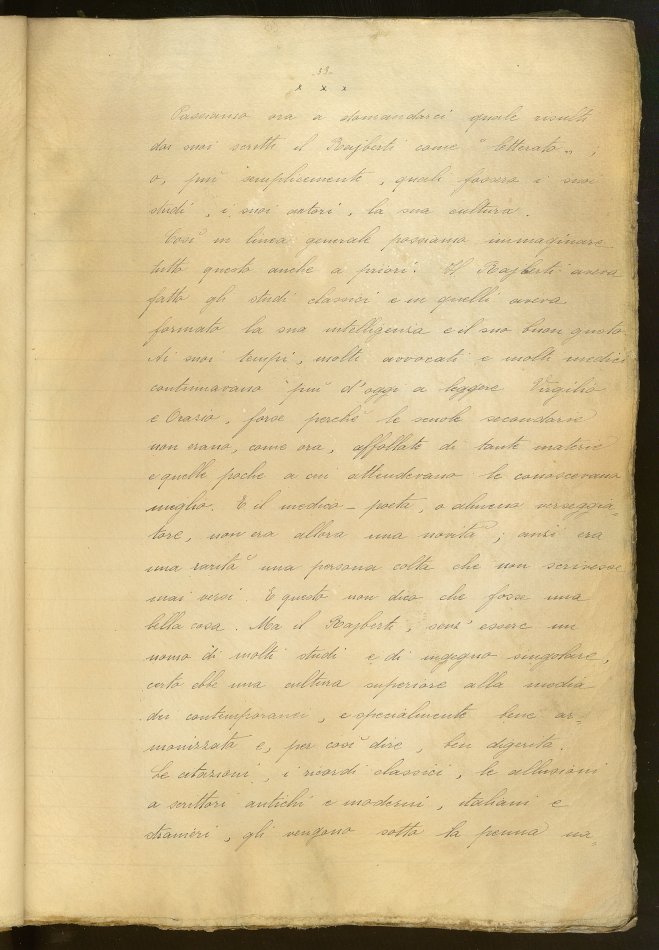 -33-
x x x
Passiamo ora a domandarci quale risulti
dai suoi scritti il Rajberti come "letterato" ;
o, più semplicemente, quali fossero i suoi
studi, i suoi autori, la sua cultura.
Così in linea generale possiamo immaginare
tutto questo anche a priori. Il Rajberti aveva
fatto gli studi classici e in quelli aveva
formato la sua intelligenza e il suo buon gusto.
Ai suoi tempi, molti avvocati e molti medici
continuavano più d'oggi a leggere Virgilio
e Orazio, forse perchè le scuole secondarie
non erano, come ora, affollate di tante materie
e quelle poche a cui attendevano le conoscevano
meglio. E il medico-poeta, o almeno verseggia-
tore, non era allora una novità; anzi era
una rarità una persona colta che non scrivesse
mai versi. E questo non dico che fosse una
bella cosa. Ma il Rajberti, senz'essere un
uomo di molti studi e di ingegno singolare,
certo ebbe una cultura superiore alla media
dei contemporanei, e specialmente bene ar-
monizzata e, per così dire, ben digerita.
Le citazioni, i ricordi classici, le allusioni
a scrittori antichi e moderni, italiani e
stranieri, gli vengono sotto la penna na-